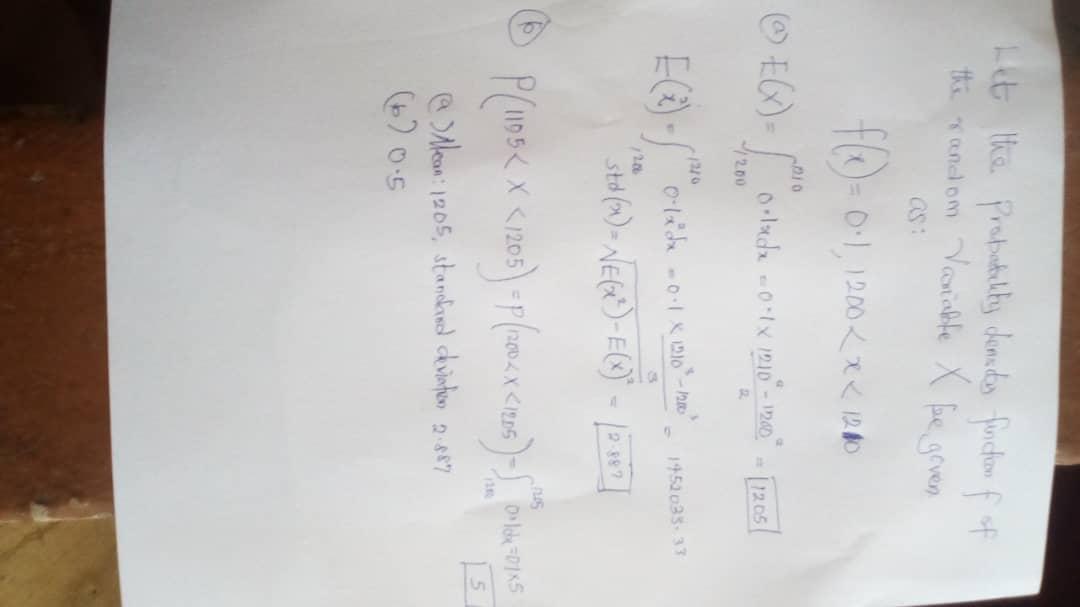 Let the Probability density function f of
the random Variable X be given
as:
f(x) = 0.1, 1200 < x < 1210
(a) E(X) = ∫₁₂₀₀¹²¹⁰ 0.1xdx = 0.1 × (1210² - 1200²)/2 = 1205
E(x²) = ∫₁₂₀₀¹²¹⁰ 0.1x²dx = 0.1 × (1210³ - 1200³)/3 = 1452033.33
std(x) = √E(x²) - E(x)² = 2.887
(b) P(1195 < X < 1205) = P(1200 < X < 1205) = ∫₁₂₀₀¹²⁰⁵ 0.1dx = 0.1×5
5
(a) Mean: 1205, standard deviation 2.887
(b) 0.5